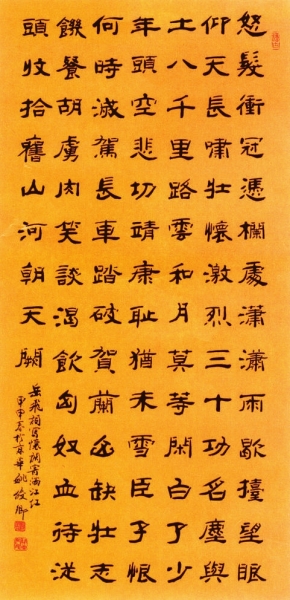 怒髮衝冠憑欄處瀟瀟雨歇擡望眼
仰天長嘯壯懷激烈三十功名塵與
土八千里路雲和月莫等閑白了少
年頭空悲切靖康耻猶未雪臣子恨
何時滅駕長車踏破賀蘭山缺壯志
饑餐胡虜肉笑談渴飲匈奴血待從
頭收拾舊山河朝天闕
岳飛寫懷調寄滿江红
甲申春於京華姚俊卿